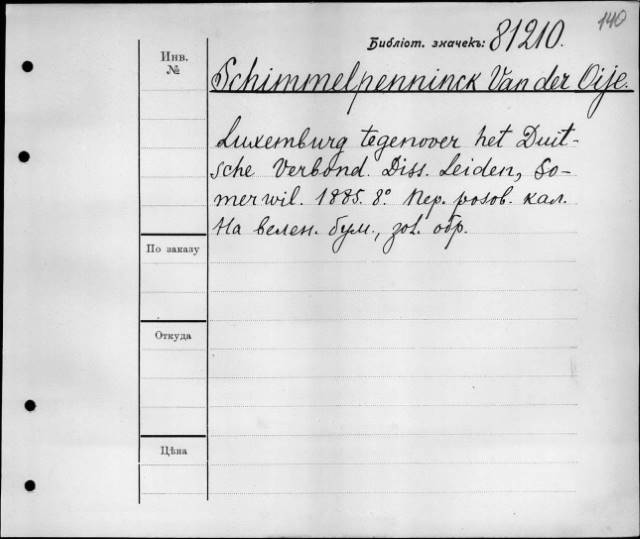 140
Библіот. значекъ: 81210.
Инв.
№
Schimmelpenninck Van der Oije.
Luxemburg tegenover het Duit-
sche Verbond. Diss. Leiden, So-
merwil. 1885. 8°. Пер. розов. кал.
На велен. бум., зол. обр.
По заказу
Откуда
Цѣна